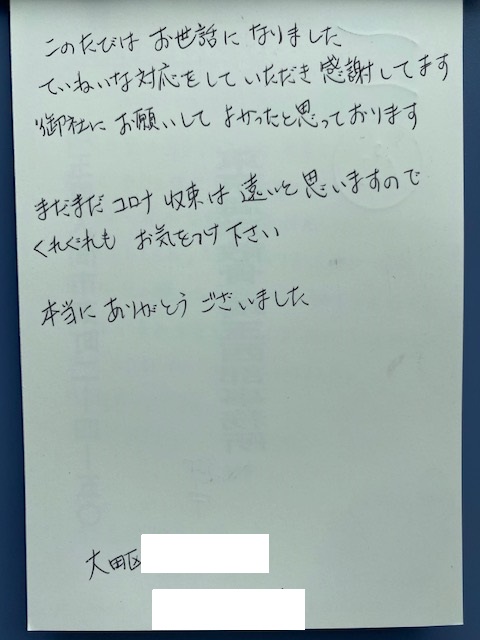 このたびは お世話に なりました
ていねいな対応をして いただき 感謝してます
御社に お願いして よかったと思っております
まだまだ コロナ 収束は 遠いと 思いますので
くれぐれも お気をつけ 下さい
本当に ありがとう ございました
大田区